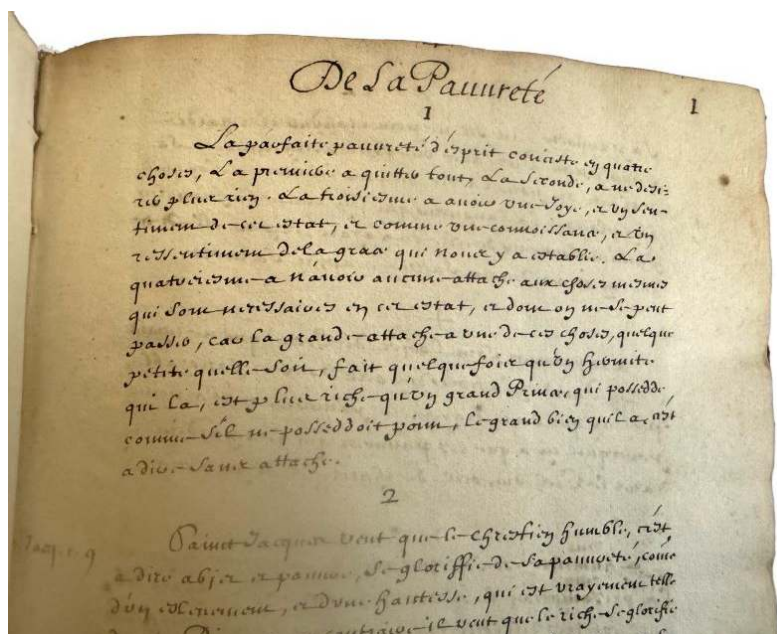 De La Pauureté
1
1
La parfaite pauureté d'esprit consiste en quatre
choses, La premiere a quitter tout, La seconde, a ne desi=
rer plus rien. La troisiesme a auoir vne Joye, et vn sen=
timent de cet estat, et comme vne connoissance, et vn
ressentiment de la grace qui nous y a establie. La
quatriesme a n'auoir aucune attache aux choses mesmes
qui sont necessaires en cet estat, et dont on ne se peut
passer, car la grande attache a vne de ces choses, quelque
petite quelle soit, fait quelquefois qu'vn hermite
qui la, est plus riche qu'vn grand Prince, qui possedde
comme s'il ne posseddoit point, le grand bien quil a, c'est
a dire sans attache.
2
Jacq. 1. 9
Sainct Jacques veut que le chrestien humble, c'est
a dire abjet et pauure, se gloriffie de sa pauureté, come
d'vn esleuement, et d'vne hautesse, qui est vrayement telle
contraire il veut que le riche se glorifie